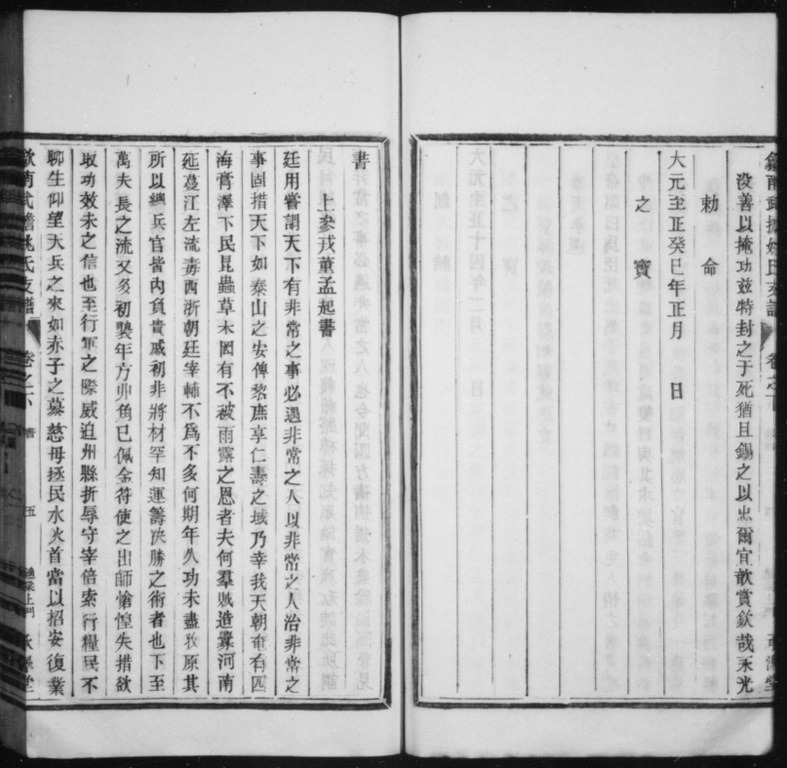 沒善以掩功茲特封之于死猶且錫之以忠爾宜歆賞欽哉永光
勅命
大元至正癸巳年正月　日
之寶
書
上參戎董孟起書
廷用嘗謂天下有非常之事必遇非常之人以非常之人治非常之
事固措天下如泰山之安俾黎庶享仁壽之域乃幸我天朝奄有四
海膏澤下民昆蟲草木罔有不被雨露之恩者夫何羣賊造釁河南
延蔓江左流毒西浙朝廷宰輔不爲不多何期年久功未盡收原其
所以總兵官皆內負貴戚初非將材罕知運籌決勝之術者也下至
萬夫長之流又多初襲年方丱角已佩金符使之出師愴惶失措欲
取功效未之信也至行軍之際威迫州縣折辱守宰倍索行糧民不
聊生仰望大兵之來如赤子之慕慈母拯民水火首當以招安復業
姚氏支譜　卷之下　書　五